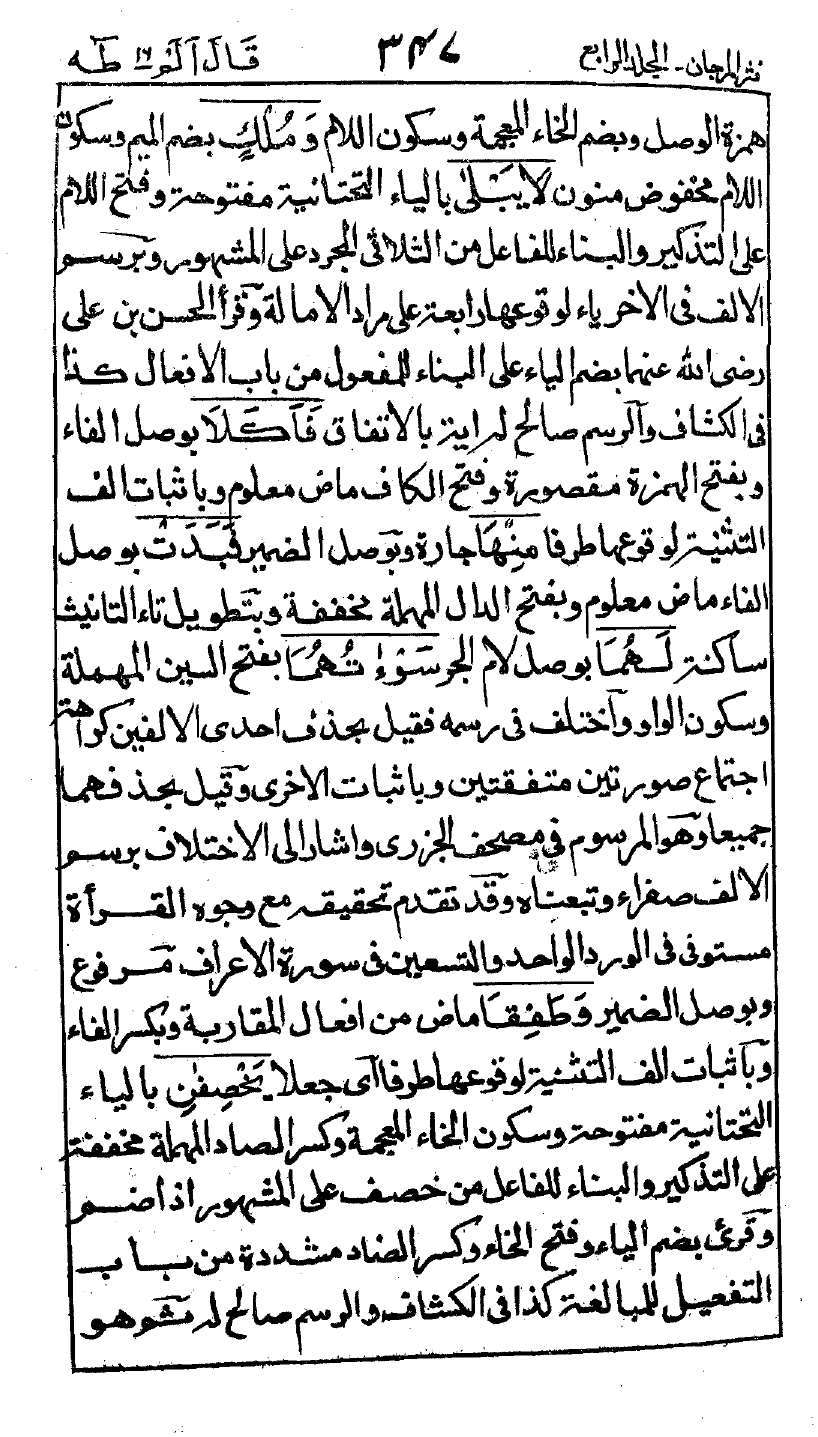 نثر المرجان - المجلد الرابع ٣٤٧ قَالَ اَلَمْ ١٦ طٰه
همزة الوصل وبضم الخاء المعجمة وسكون اللام وَمُلْكٍ بضم الميم وسكون
اللام مخفوض منون لَا يَبْلٰى بالياء التحتانية مفتوحة وفتح اللام
على التذكير والبناء للفاعل من الثلاثى المجرد على المشهور وبرسم
الالف فى الاخر ياء لوقوعها رابعة على مراد الامالة وقرأ الحسن بن على
رضى الله عنهما بضم الياء على البناء للمفعول من باب الافعال كذا
فى الكشاف والرسم صالح له اية بالاتفاق فَاَكَلَا بوصل الفاء
وبفتح الهمزة مقصورة وفتح الكاف ماض معلوم وباثبات الف
التثنية لوقوعها طرفا مِنْهَا جارة وبوصل الضمير فَبَدَتْ بوصل
الفاء ماض معلوم وبفتح الدال المهملة مخففة وبتطويل تاء التانيث
ساكنة لَهُمَا بوصل لام الجر سَوْءٰتُهُمَا بفتح السين المهملة
وسكون الواو واختلف فى رسمه فقيل بحذف احدى الالفين كراهة
اجتماع صورتين متفقتين وباثبات الاخرى وقيل بحذفهما
جميعا وهو المرسوم فى مصحف الجزرى واشار الى الاختلاف برسم
الالف صفراء وتبعناه وقد تقدم تحقيقه مع وجوه القرأة
مستوفى فى الورد الواحد والتسعين فى سورة الاعراف مرفوع
وبوصل الضمير وَطَفِقَا ماض من افعال المقاربة وبكسر الفاء
وباثبات الف التثنية لوقوعها طرفا اى جعلا يَخْصِفٰنِ بالياء
التحتانية مفتوحة وسكون الخاء المعجمة وكسر الصاد المهملة مخففة
على التذكير والبناء للفاعل من خصف على المشهور اذا ضم
وقرئ بضم الياء وفتح الخاء وكسر الصاد مشددة من باب
التفعيل للمبالغة كذا فى الكشاف والرسم صالح له وهو